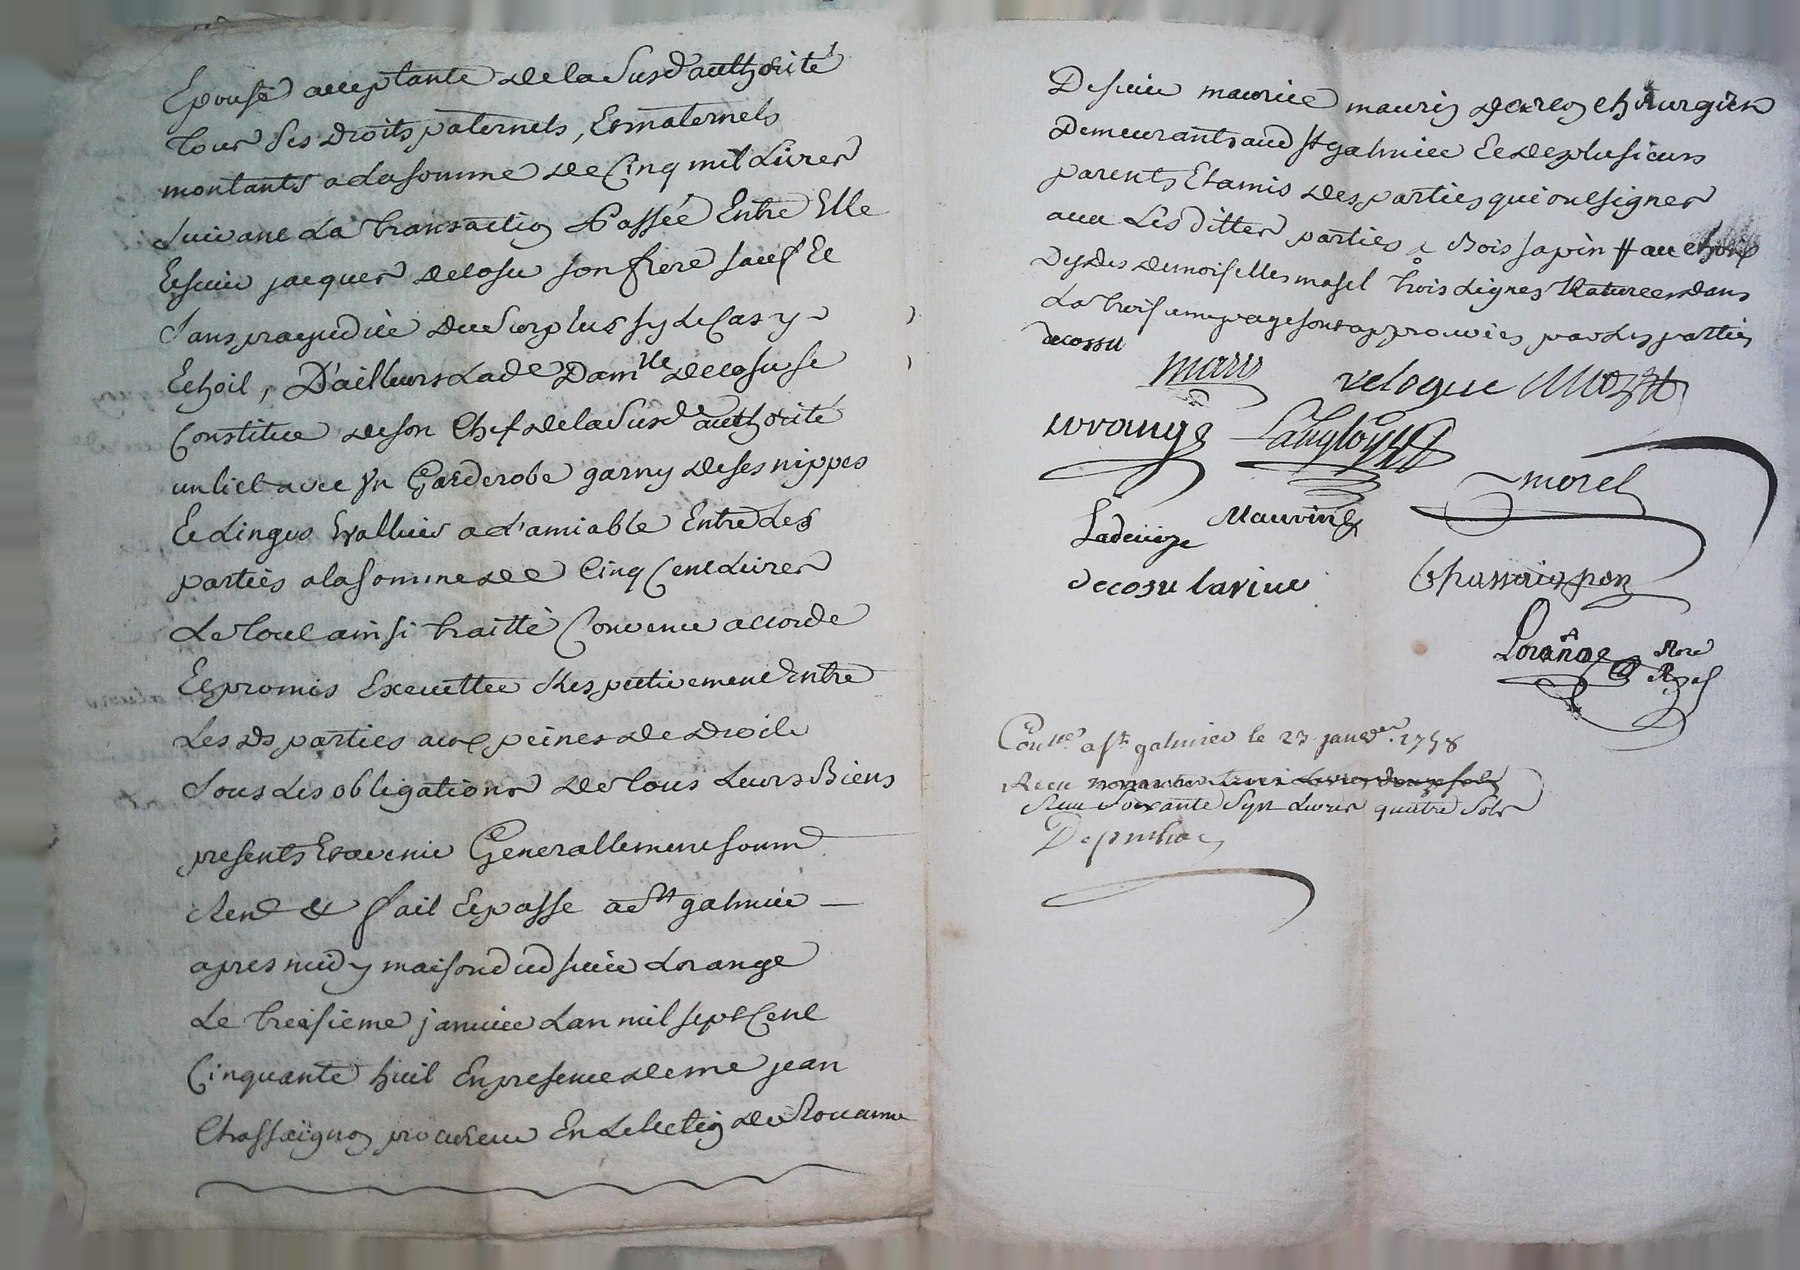 Epouse acceptante de la Susd authorité
tous ses droits paternels, Et maternels
montants a la somme de Cinq mil Livres
Suivant La transaction Passée Entre Elle
Et sieur jacques decosu son frere sauf Et
Sans prejudice du Surplus sy le Cas y
Echoit, D'ailleurs Lade Damlle decosu se
Constitue de son Chef de la Susde authorité
un lict avec Un Garderobe garny de ses nippes
Et Linges Evalluės a L'amiable Entre Les
parties a la somme de Cinq Cent Livres
Le tout ainsi traitté Convenu accorde
Et promis Executter Respectivement Entre
Les ds parties aux peines de Droit
Sous Les obligations de tous Leurs Biens
presents Et avenir Generallement soumd
Rend & fait Et passe a st galmier
apres midy maison dud sieur Lorange
Le treisieme janvier Lan mil sept Cent
Cinquante huit En presence de me jean
Chassaignon procureur En Lelection de Rouanne
De sieur maurice maurin chirurgien
Demeurants aud st galmier Et de plusieurs
parents Et amis des parties qui ont signer
avec Les dittes parties Bois sapin # au
desdes demoiselles masel trois Lignes Raturees dans
La troisieme page sont approuvées par Les parties
decosu
velogue
Lorange Langlois
morel
Ladeveze Maurin
decosu lavive Chassaignon
Lorange
Conlle a st galmier le 23 janver 1758
Receu
Receu Soixante Sept Livres quatre Sols